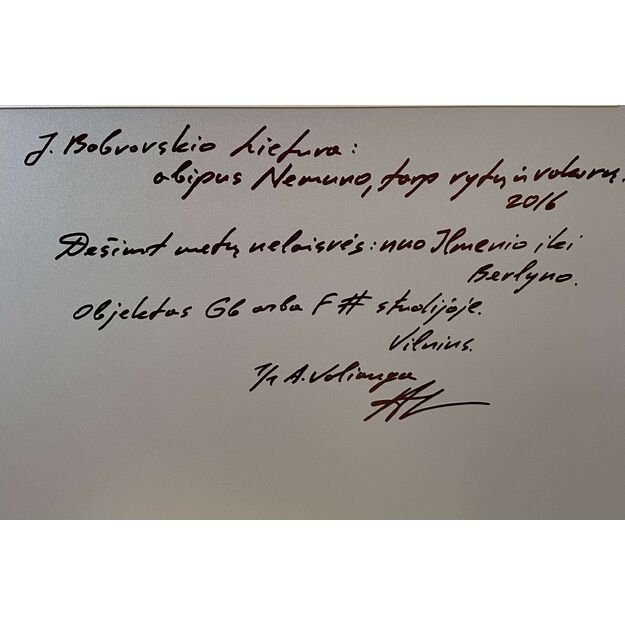 J. Bobrovskio Lietuva:
abipus Nemuno, tarp rytų ir vakarų.
2016
Dešimt metų nelaisvės: nuo Ilmenio iki
Berlyno.
Objektas Gb arba F# studijoje.
Vilnius.
1/1 A. Valiauga